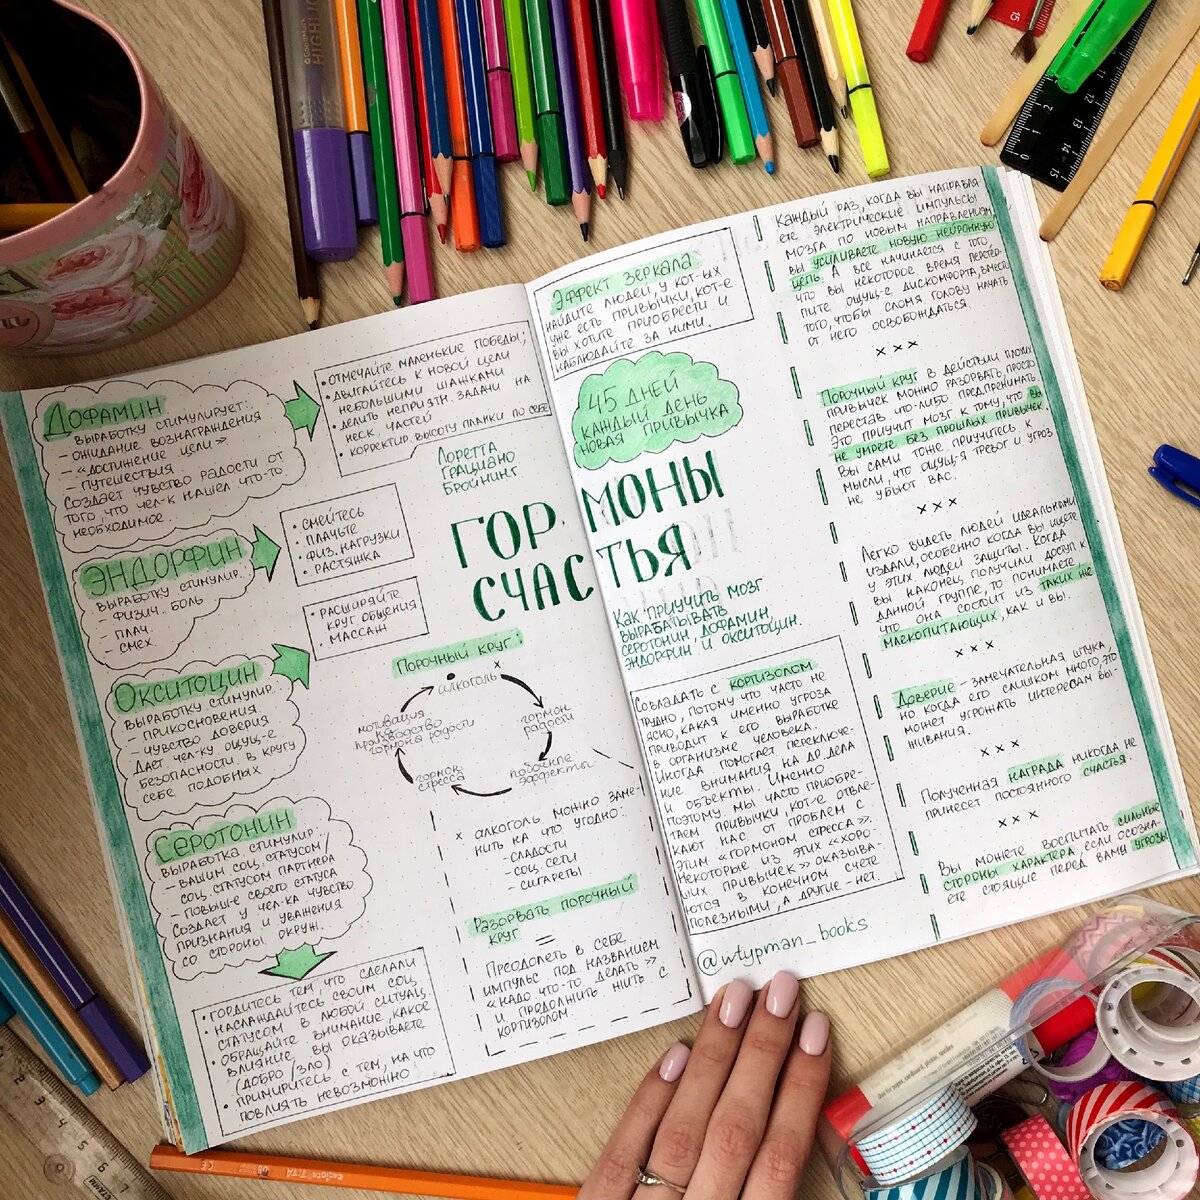 Дофамин
выработку стимулирует:
- ожидание вознаграждения
- «достижение цели»
- путешествия
Создает чувство радости от
того, что чел-к нашел что-то
необходимое.
• отмечайте маленькие победы;
• двигайтесь к новой цели
небольшими шажками
• делить неприятн. задачи на
неск. частей
• корректир. высоту планки по себе
Эндорфин
выработку стимулир.:
- физич. боль
- плач
- смех.
• смейтесь
• плачьте
• физ. нагрузки
• растяжка
Окситоцин
выработку стимулир.:
- прикосновения
- чувство доверия
Дает чел-ку ощущ-е
безопасности в кругу
себе подобных
• расширяйте
круг общения
• массаж
Серотонин
выработка стимулир.:
- вашим соц. статусом/
соц. статусом партнера
- повыш-е своего статуса
Создает у чел-ка чувство
признания и уважения
со стороны окруж.
• гордитесь тем, что сделали
• наслаждайтесь своим соц.
статусом в любой ситуац.
• обращайте внимание, какое
влияние вы оказываете
(добро/зло)
• примиритесь с тем, на что
повлиять невозможно
Лоретта
Грациано
Бройнинг
ГОРМОНЫ
СЧАСТЬЯ
Как приучить мозг
вырабатывать
серотонин, дофамин,
эндорфин и окситоцин.
Порочный круг:
x
алкоголь
гормон
радости
побочные
эффекты
гормон
стресса
мотивация
производство
гормона радости
x алкоголь можно заме-
нить на что угодно:
- сладости
- соц. сети
- сигареты
Разорвать порочный
круг
=
Преодолеть в себе
импульс под названием
«надо что-то делать»
и продолжить жить с
кортизолом.
Эффект зеркала:
найдите людей, у кот-ых
уже есть привычки, кот-е
вы хотите приобрести и
наблюдайте за ними.
45 дней
каждый день
новая привычка
Совладать с кортизолом
трудно, потому что часто не
ясно, какая именно угроза
приводит к его выработке
в организме человека.
Иногда помогает переключе-
ние внимания на др. дела
и объекты. Именно
поэтому мы часто приобре-
таем привычки, кот-е отвле-
кают нас от проблем с
этим «гормоном стресса».
Некоторые из этих «хоро-
ших привычек» оказыва-
ются в конечном счете
полезными, а другие - нет.
@wtypman_books
Каждый раз, когда вы направля
ете электрические импульсы
мозга по новым направлениям,
вы усиливаете новую нейронную
цепь. А все начинается с того,
что вы некоторое время перетер-
пите ощущ-е дискомфорта, вместо
того, чтобы сломя голову начать
от него освобождаться.
x x x
Порочный круг в действии плохих
привычек можно разорвать, просто
перестав что-либо предпринимать.
Это приучит мозг к тому, что вы
не умрете без прошлых привычек.
Вы сами тоже приучитесь к
мысли, что ощущ-я тревог и угроз
не убьют вас.
x x x
Легко видеть людей идеальными
издали, особенно когда вы ищете
у этих людей защиты. Когда
вы наконец получили доступ к
данной группе, то понимаете,
что она состоит из таких же
млекопитающих, как и вы.
x x x
Доверие - замечательная штука,
но когда его слишком много, это
может угрожать интересам вы-
живания.
x x x
Полученная награда никогда не
принесет постоянного счастья.
x x x
Вы можете воспитать сильные
стороны характера, если осозна-
ете стоящие перед вами угрозы